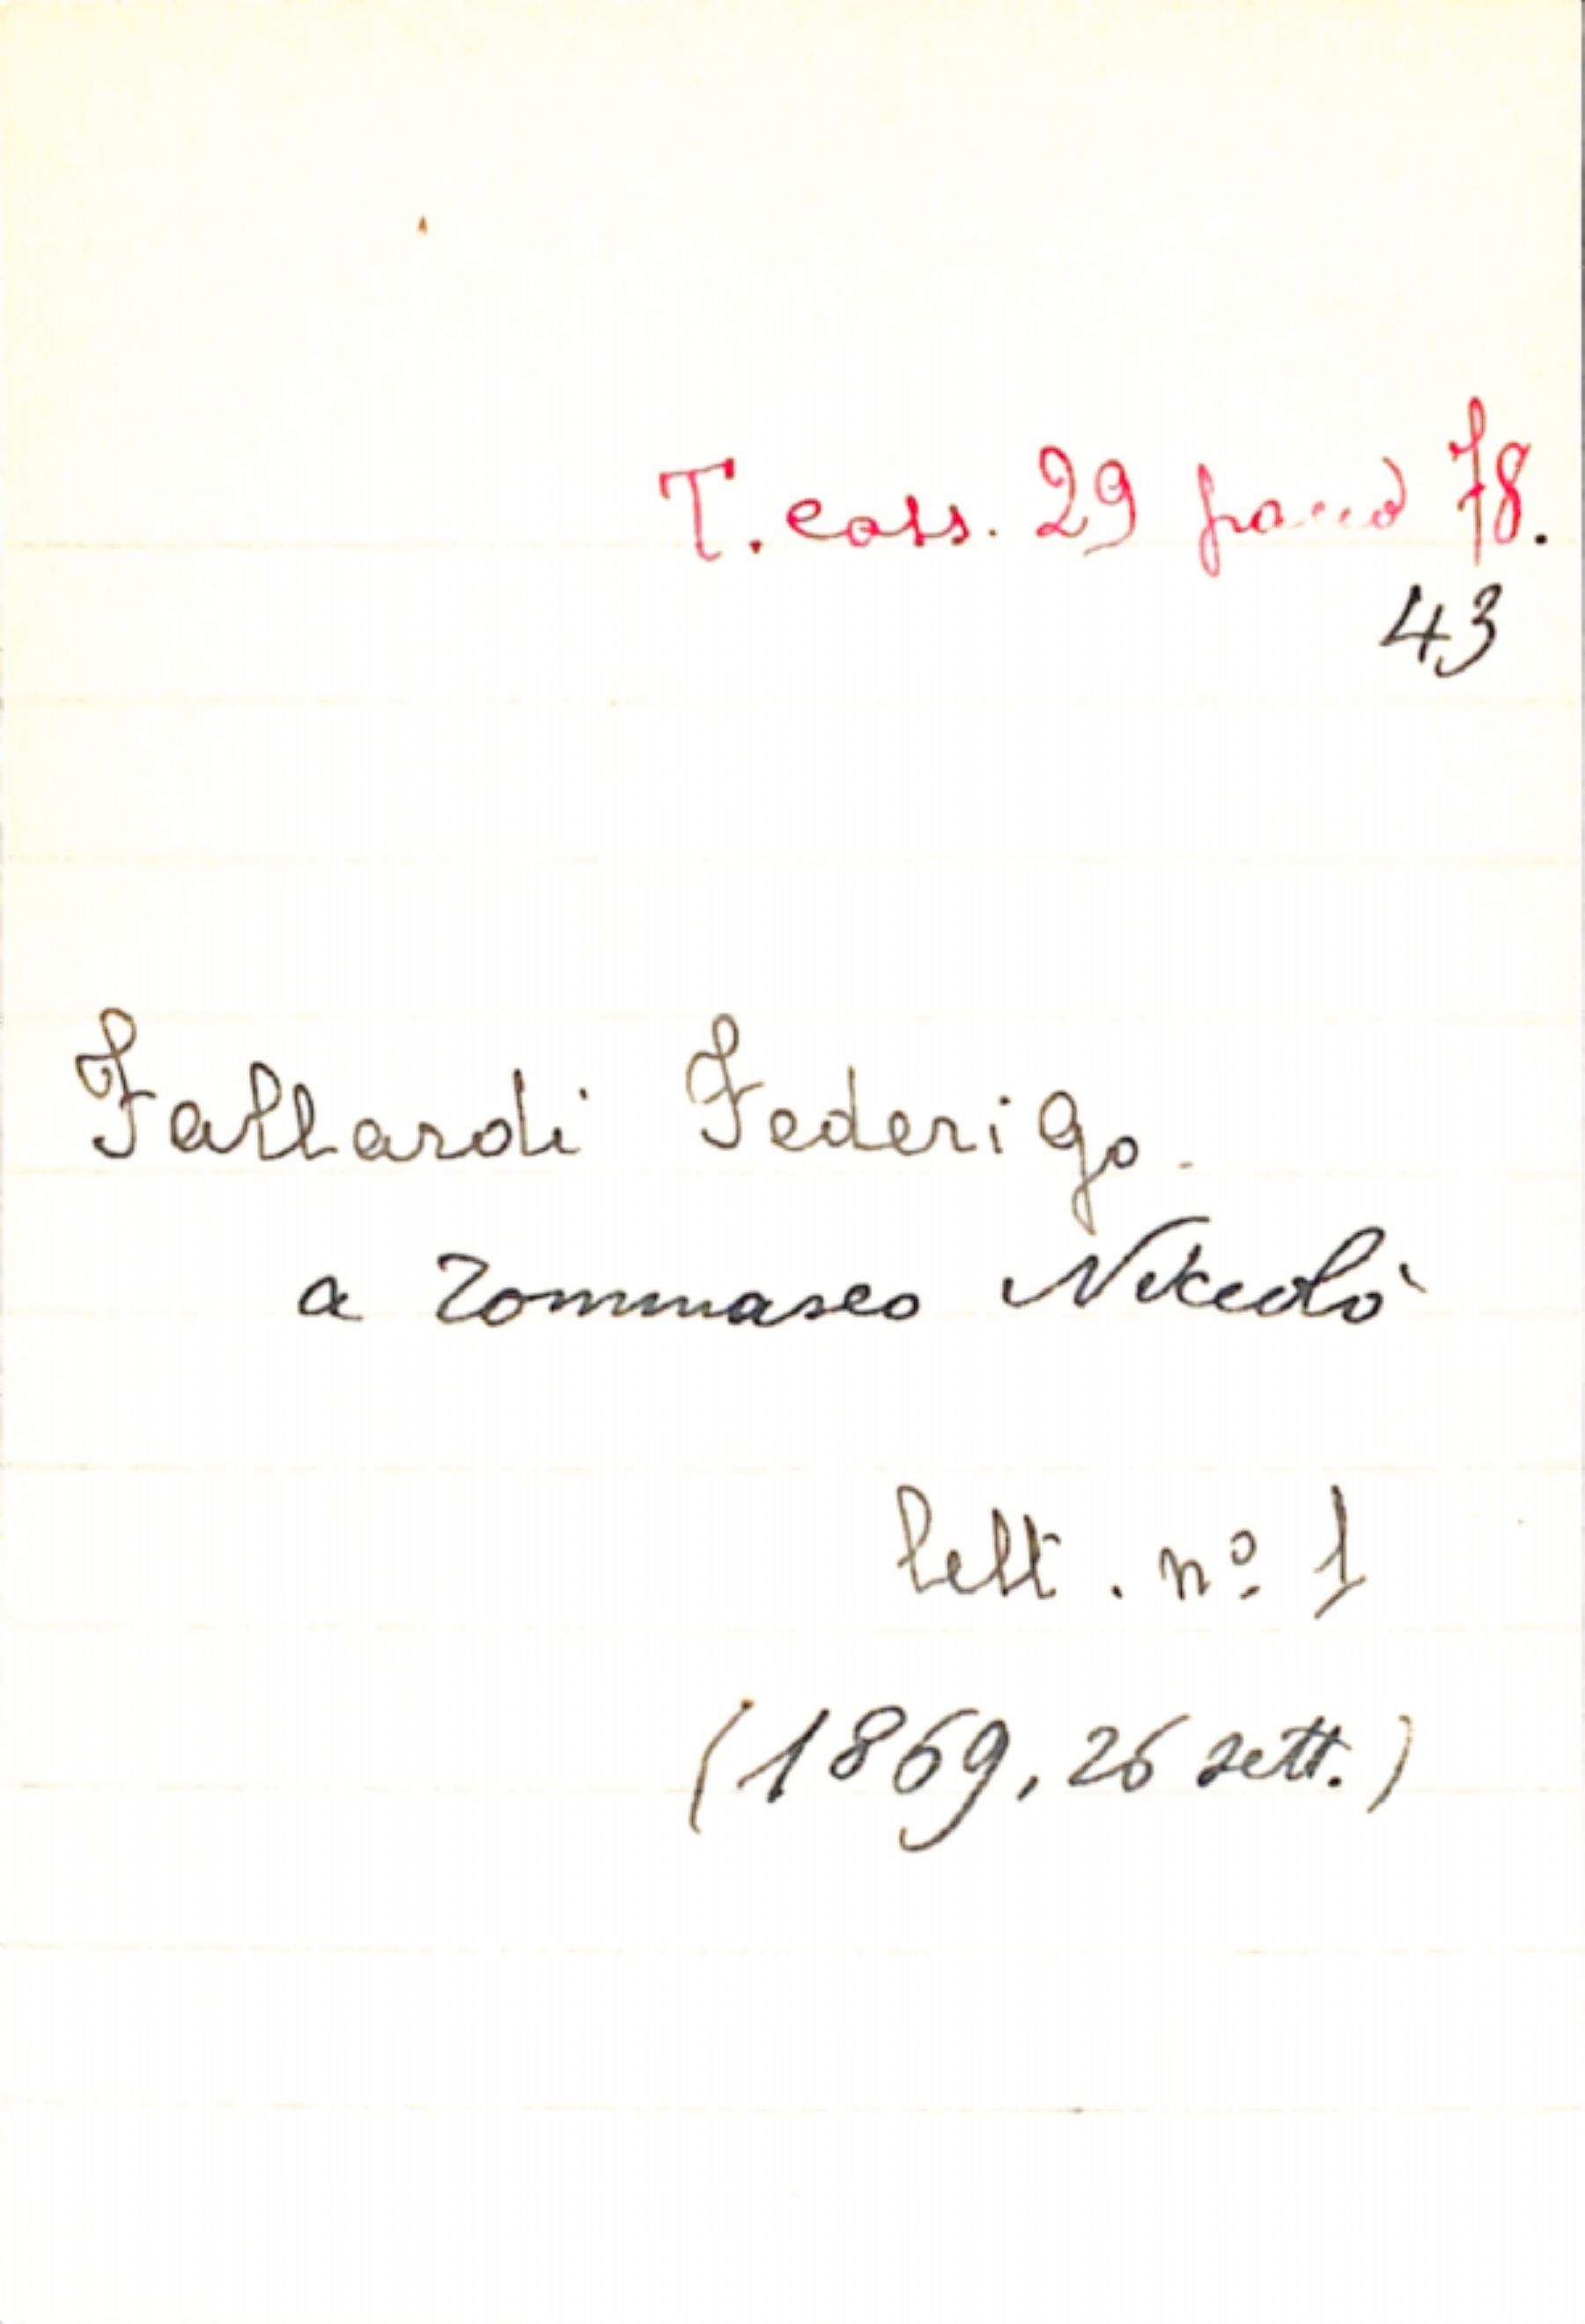 T. cass. 29 pacco 78.
43
Fallardi Federigo.
a Tommaseo Niccolò
lett. nº 1
(1869, 26 sett.)